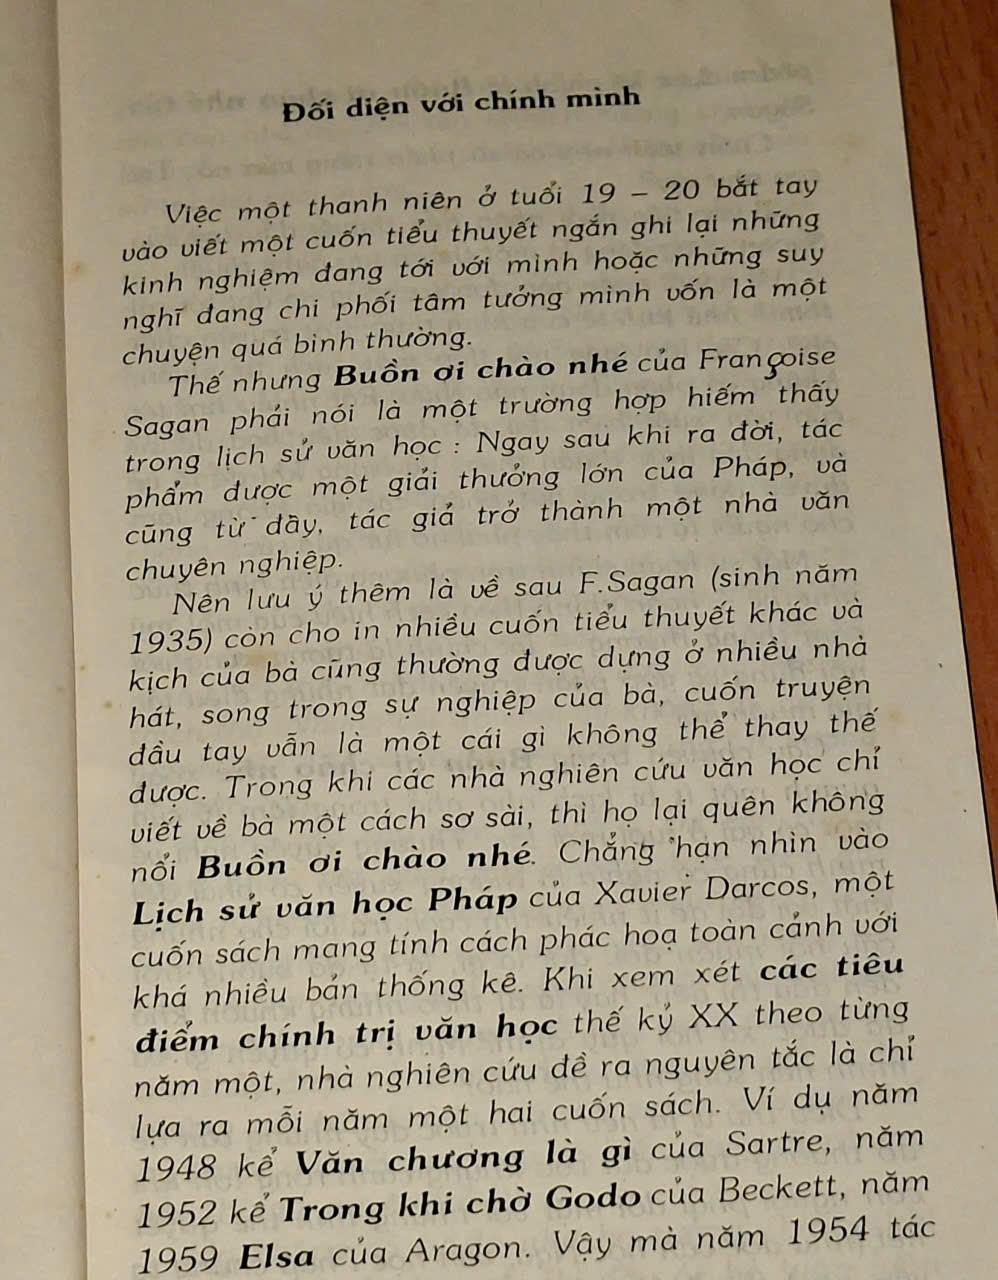 Đối diện với chính mình
Việc một thanh niên ở tuổi 19 – 20 bắt tay
vào viết một cuốn tiểu thuyết ngắn ghi lại những
kinh nghiệm đang tới với mình hoặc những suy
nghĩ đang chi phối tâm tưởng mình vốn là một
chuyện quá bình thường.
Thế nhưng Buồn ơi chào nhé của Françoise
Sagan phải nói là một trường hợp hiếm thấy
trong lịch sử văn học : Ngay sau khi ra đời, tác
phẩm được một giải thưởng lớn của Pháp, và
cũng từ đầy, tác giả trở thành một nhà văn
chuyên nghiệp.
Nên lưu ý thêm là về sau F.Sagan (sinh năm
1935) còn cho in nhiều cuốn tiểu thuyết khác và
kịch của bà cũng thường được dựng ở nhiều nhà
hát, song trong sự nghiệp của bà, cuốn truyện
đầu tay vẫn là một cái gì không thể thay thế
được. Trong khi các nhà nghiên cứu văn học chỉ
viết về bà một cách sơ sài, thì họ lại quên không
nổi Buồn ơi chào nhé. Chẳng hạn nhìn vào
Lịch sử văn học Pháp của Xavier Darcos, một
cuốn sách mang tính cách phác hoạ toàn cảnh với
khá nhiều bản thống kê. Khi xem xét các tiêu
điểm chính trị văn học thế kỷ XX theo từng
năm một, nhà nghiên cứu đề ra nguyên tắc là chỉ
lựa ra mỗi năm một hai cuốn sách. Ví dụ năm
1948 kể Văn chương là gì của Sartre, năm
1952 kể Trong khi chờ Godo của Beckett, năm
1959 Elsa của Aragon. Vậy mà năm 1954 tác